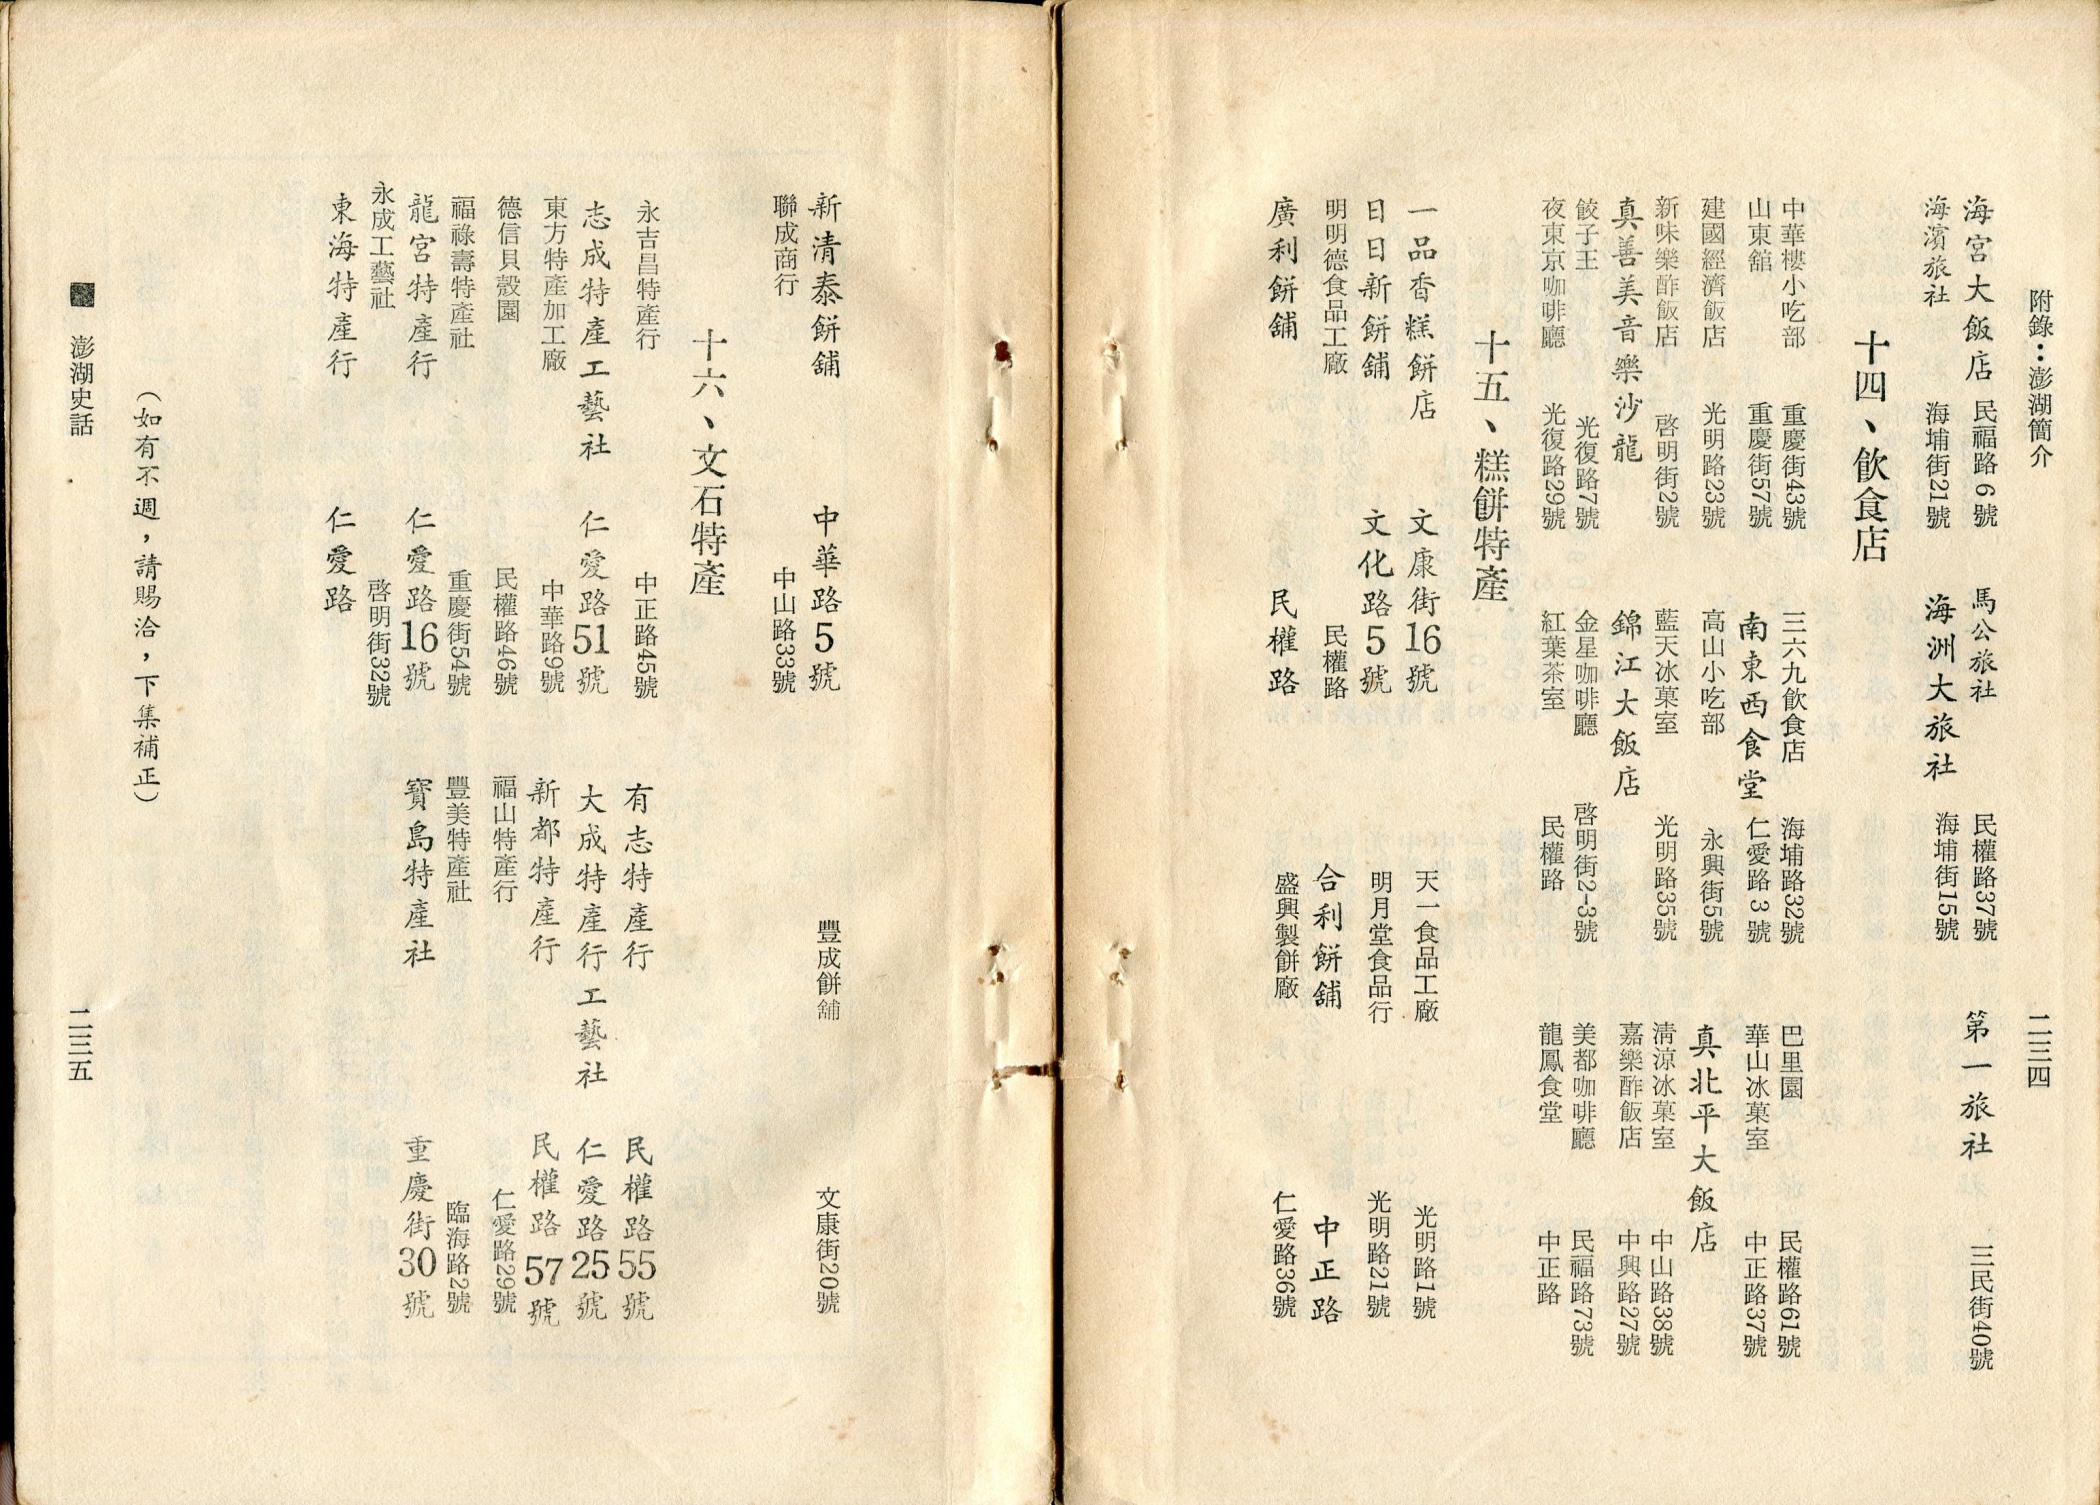 附錄：澎湖簡介
二三四
海宮大飯店 民福路6號 馬公旅社 民權路37號 第一旅社 三民街40號
海濱旅社 海埔街21號 海洲大旅社 海埔街15號
十四、飲食店
中華樓小吃部 重慶街43號 三六九飲食店 海埔路32號 巴里園 民權路61號
山東舘 重慶街57號 南東西食堂 仁愛路3號 華山冰菓室 中正路37號
建國經濟飯店 光明路23號 高山小吃部 永興街5號 真北平大飯店
新味樂酢飯店 啓明街2號 藍天冰菓室 光明路35號 淸涼冰菓室 中山路38號
真善美音樂沙龍 錦江大飯店 嘉樂酢飯店 中興路27號
餃子王 光復路7號 金星咖啡廳 啓明街2-3號 美都咖啡廳 民福路73號
夜東京咖啡廳 光復路29號 紅葉茶室 民權路 龍鳳食堂 中正路
十五、糕餅特產
一品香糕餅店 文康街16號 天一食品工廠 光明路1號
日日新餅舖 文化路5號 明月堂食品行 光明路21號
明明德食品工廠 民權路 合利餅舖 中正路
廣利餅舖 民權路 盛興製餅廠 仁愛路36號
新清泰餅舖 中華路5號 豐成餅舖 文康街20號
聯成商行 中山路33號
十六、文石特產
永吉昌特產行 中正路45號 有志特產行 民權路55號
志成特產工藝社 仁愛路51號 大成特產行工藝社 仁愛路25號
東方特產加工廠 中華路9號 新都特產行 民權路57號
德信貝殼園 民權路46號 福山特產行 仁愛路29號
福祿壽特產社 重慶街54號 豐美特產社 臨海路2號
龍宮特產行 仁愛路16號 寶島特產社 重慶街30號
永成工藝社 啓明街32號
東海特產行 仁愛路
（如有不週，請賜洽，下集補正）
■ 澎湖史話
二三五